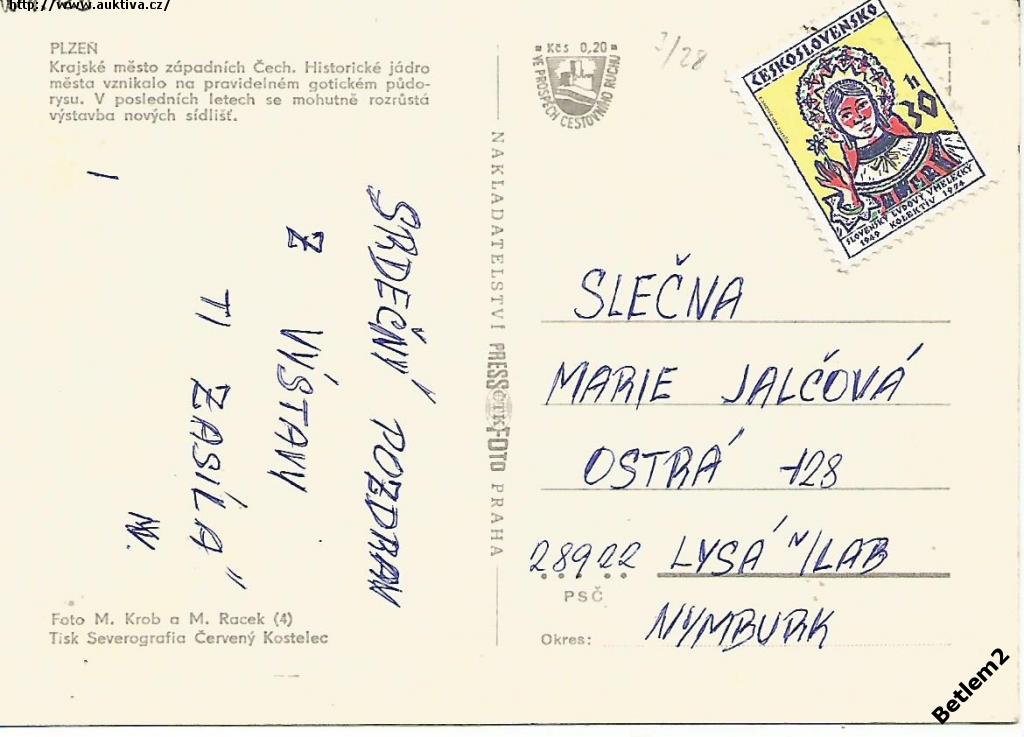 http://www.auktiva.cz/
PLZEŇ
Krajské město západních Čech. Historické jádro
města vznikalo na pravidelném gotickém půdo-
rysu. V posledních letech se mohutně rozrůstá
výstavba nových sídlišť.
SRDEČNÝ POZDRAV
Z VÝSTAVY
TI ZASÍLÁ
Foto M. Krob a M. Racek (4)
Tisk Severografia Červený Kostelec
NAKLADATELSTVÍ PRESSFOTO PRAHA
ČTK
Kčs 0,20
VE PROSPĚCH CESTOVNÍHO RUCHU
3/28
ČESKOSLOVENSKO
30 h
SLOVENSKÝ ĽUDOVÝ UMELECKÝ
1949 KOLEKTÍV 1974
SLEČNA
MARIE JALČOVÁ
OSTRÁ 128
28922 LYSÁ N/LAB
PSČ
Okres: NYMBURK
Betlem2